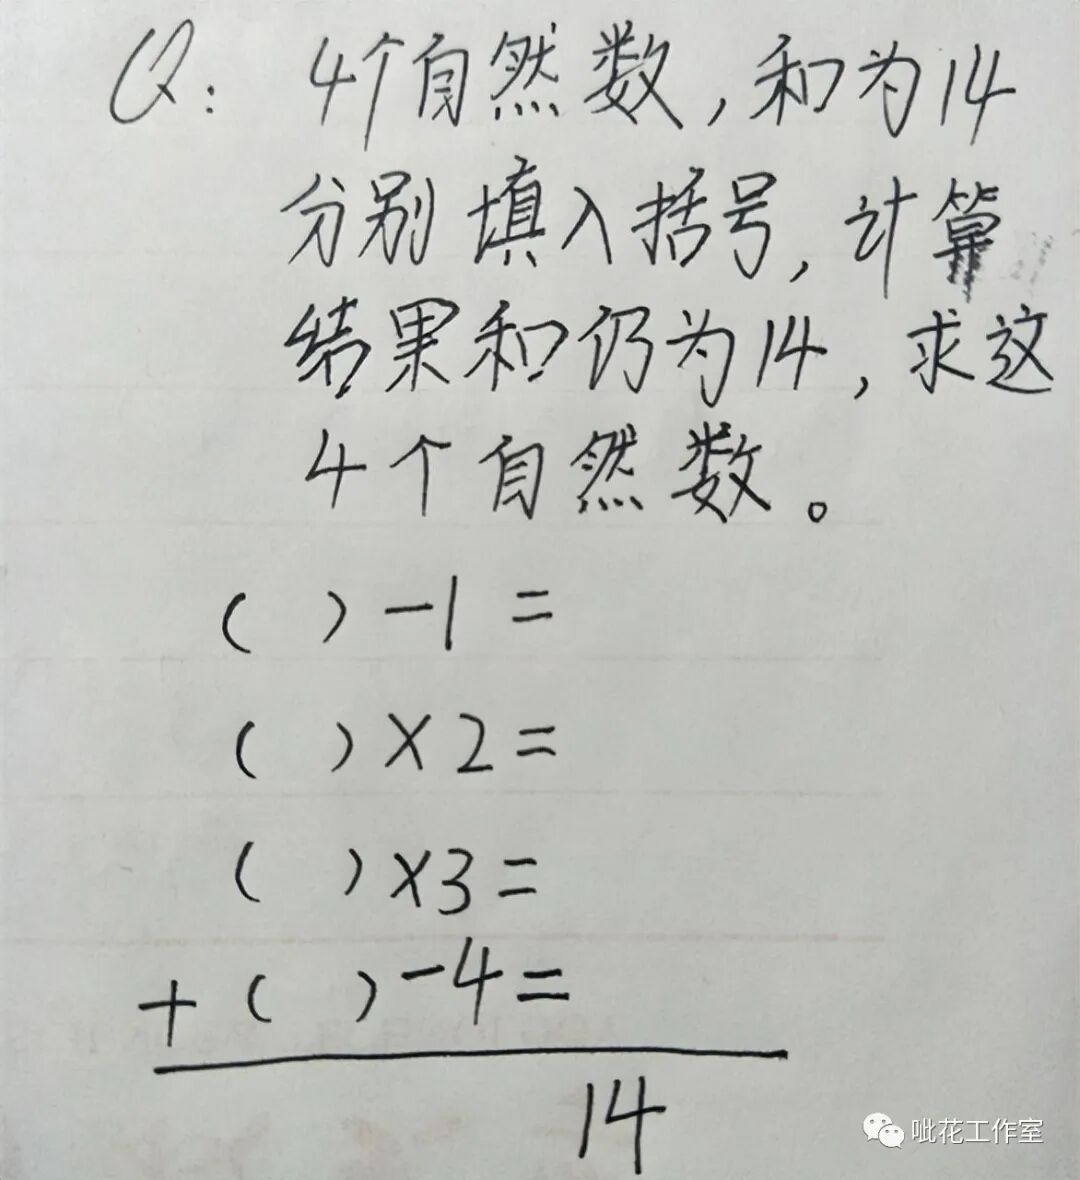 Q: 4个自然数,和为14
分别填入括号,计算
结果和仍为14,求这
4个自然数。
( )-1=
( )×2=
( )×3=
+( )-4=
14
呲花工作室